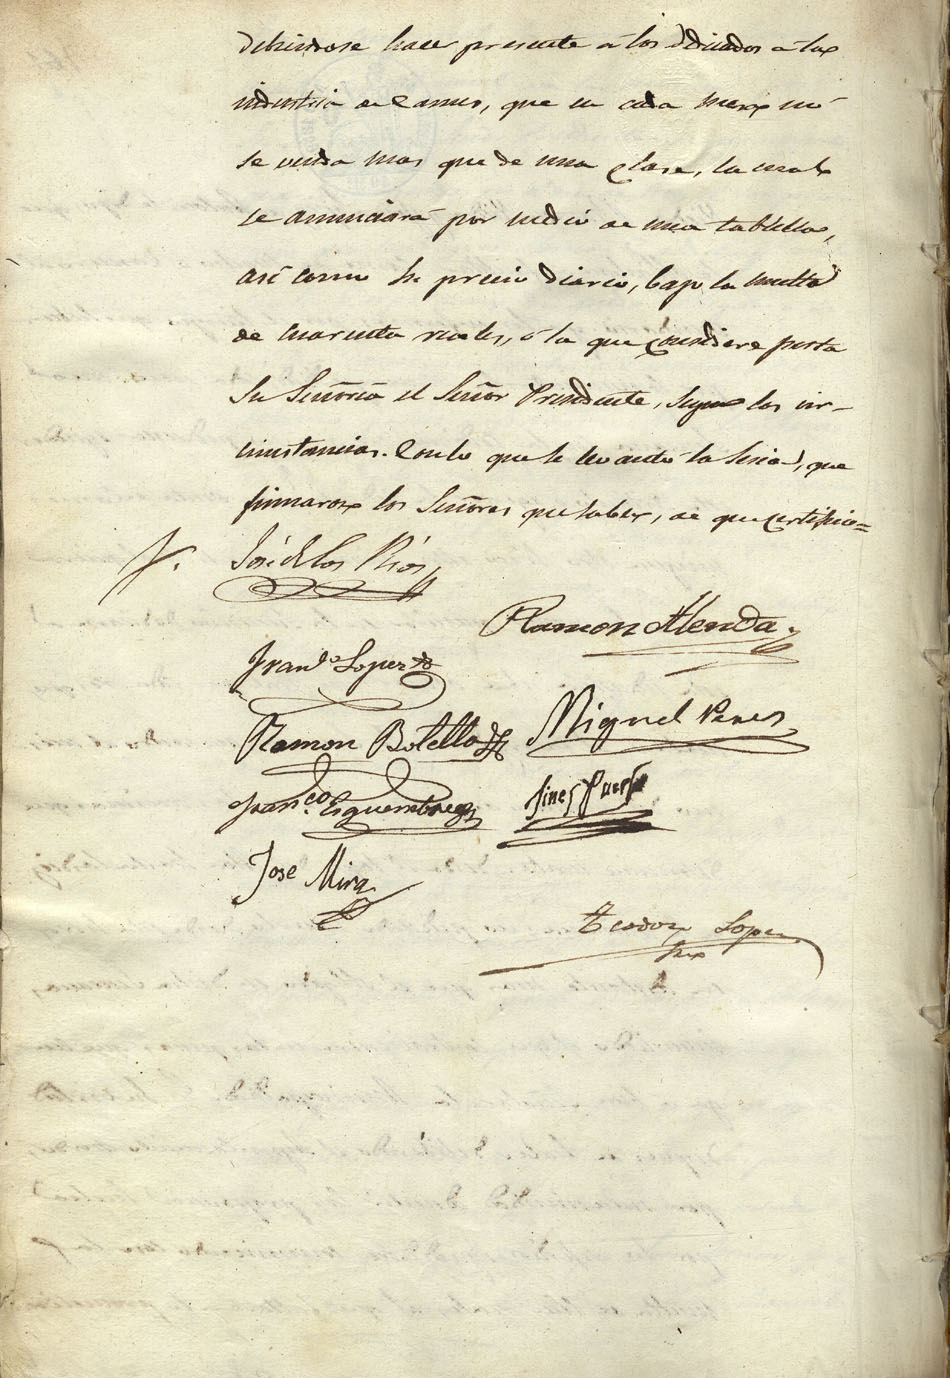 debiendose hacer presente á los dedicados á la
industria de carnes, que en cada mesa no
se venda mas que de una clase, la cual
se anunciará por medio de una tablilla,
asi como su precio diario, bajo la multa
de cuarenta reales, ó la que considere justa
Su Señoria el Señor Presidente, segun las cir-
cunstancias. Con lo que se levantó la sesion, que
firmaron los Señores que saben, de que certifico=
José de los Rios
Ramon Alenda
Fran.co Lopez
Ramon Botella
Miguel Perez
Fran.co Esquembre
Gines Puerto
Jose Mira
Teodoro Lopez